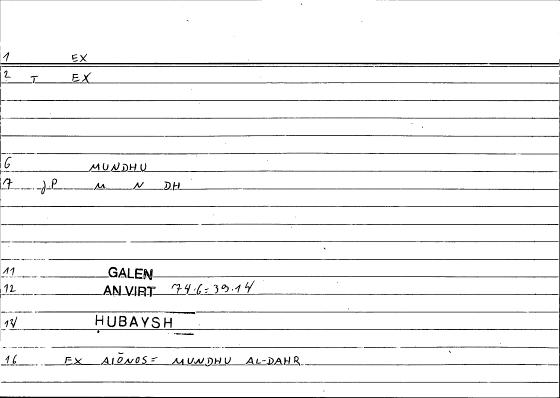 1 EX
2 T EX
6 MUNDHU
7 JP M N DH
11 GALEN
12 AN VIRT 74.6=39.14
14 ḤUBAYSH
16 EX AIŌNOS= MUNDHU AL-DAHR